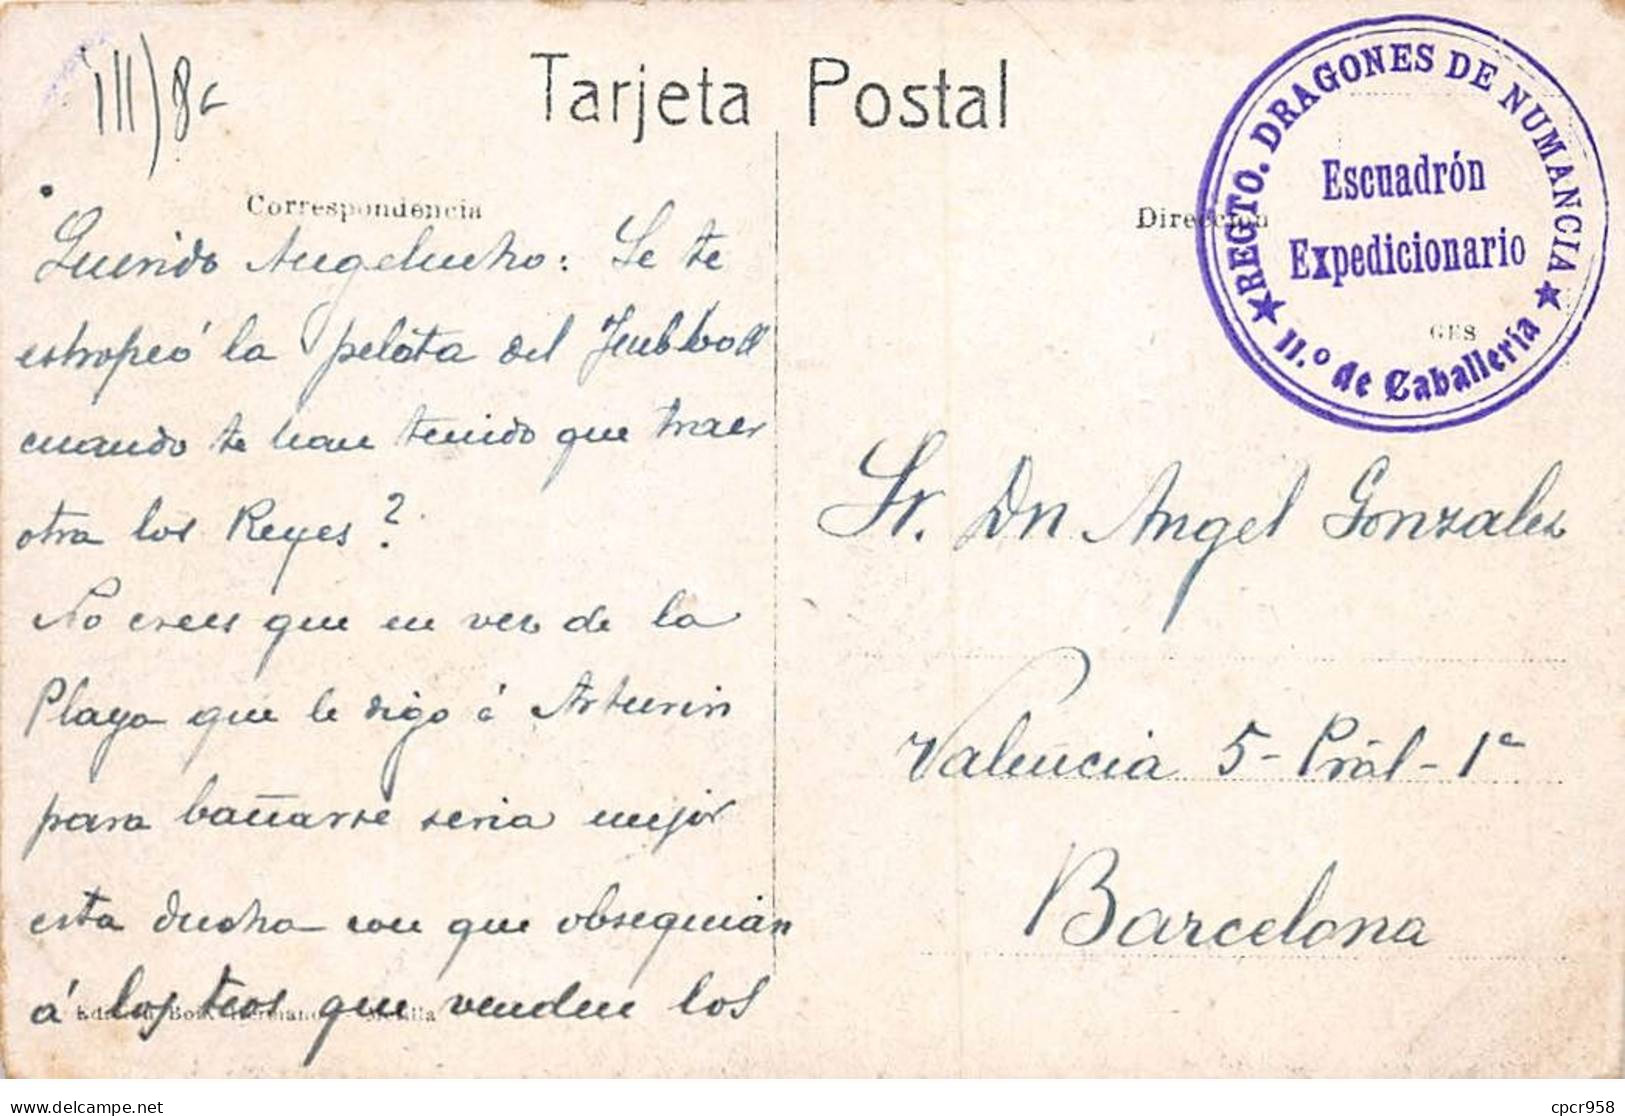 III) 8c
Tarjeta Postal
Correspondencia
Dirección
REGTO. DRAGONES DE NUMANCIA
Escuadrón
Expedicionario
11.º de Caballería
GES
Querido Angelucho: Se te
estropeó la pelota del
cuando te han tenido que traer
otra los Reyes?
No crees que en vez de la
Playa que le digo á Arturin
para bañarse seria mejor
esta ducha con que obsequian
á los teos que venden los
Boix Hermanos - Melilla
Sr. Dn Angel Gonzalez
Valencia 5 - Pral - 1ª
Barcelona
delcampe.net
cpcr958